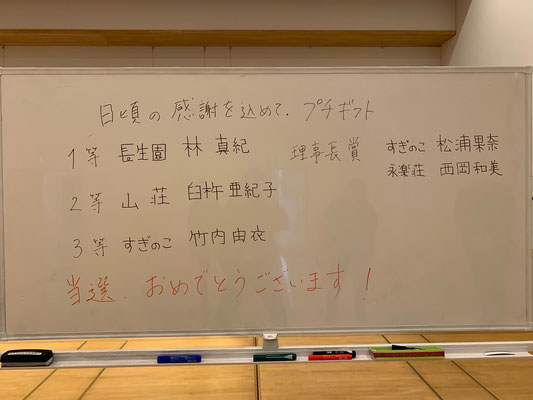 日頃の感謝を込めて、プチギフト
1等 長生園 林 真紀
2等 山荘 臼杵 亜紀子
3等 すぎのこ 竹内 由衣
理事長賞 すぎのこ 松浦果奈
永楽荘 西岡和美
当選、おめでとうございます!